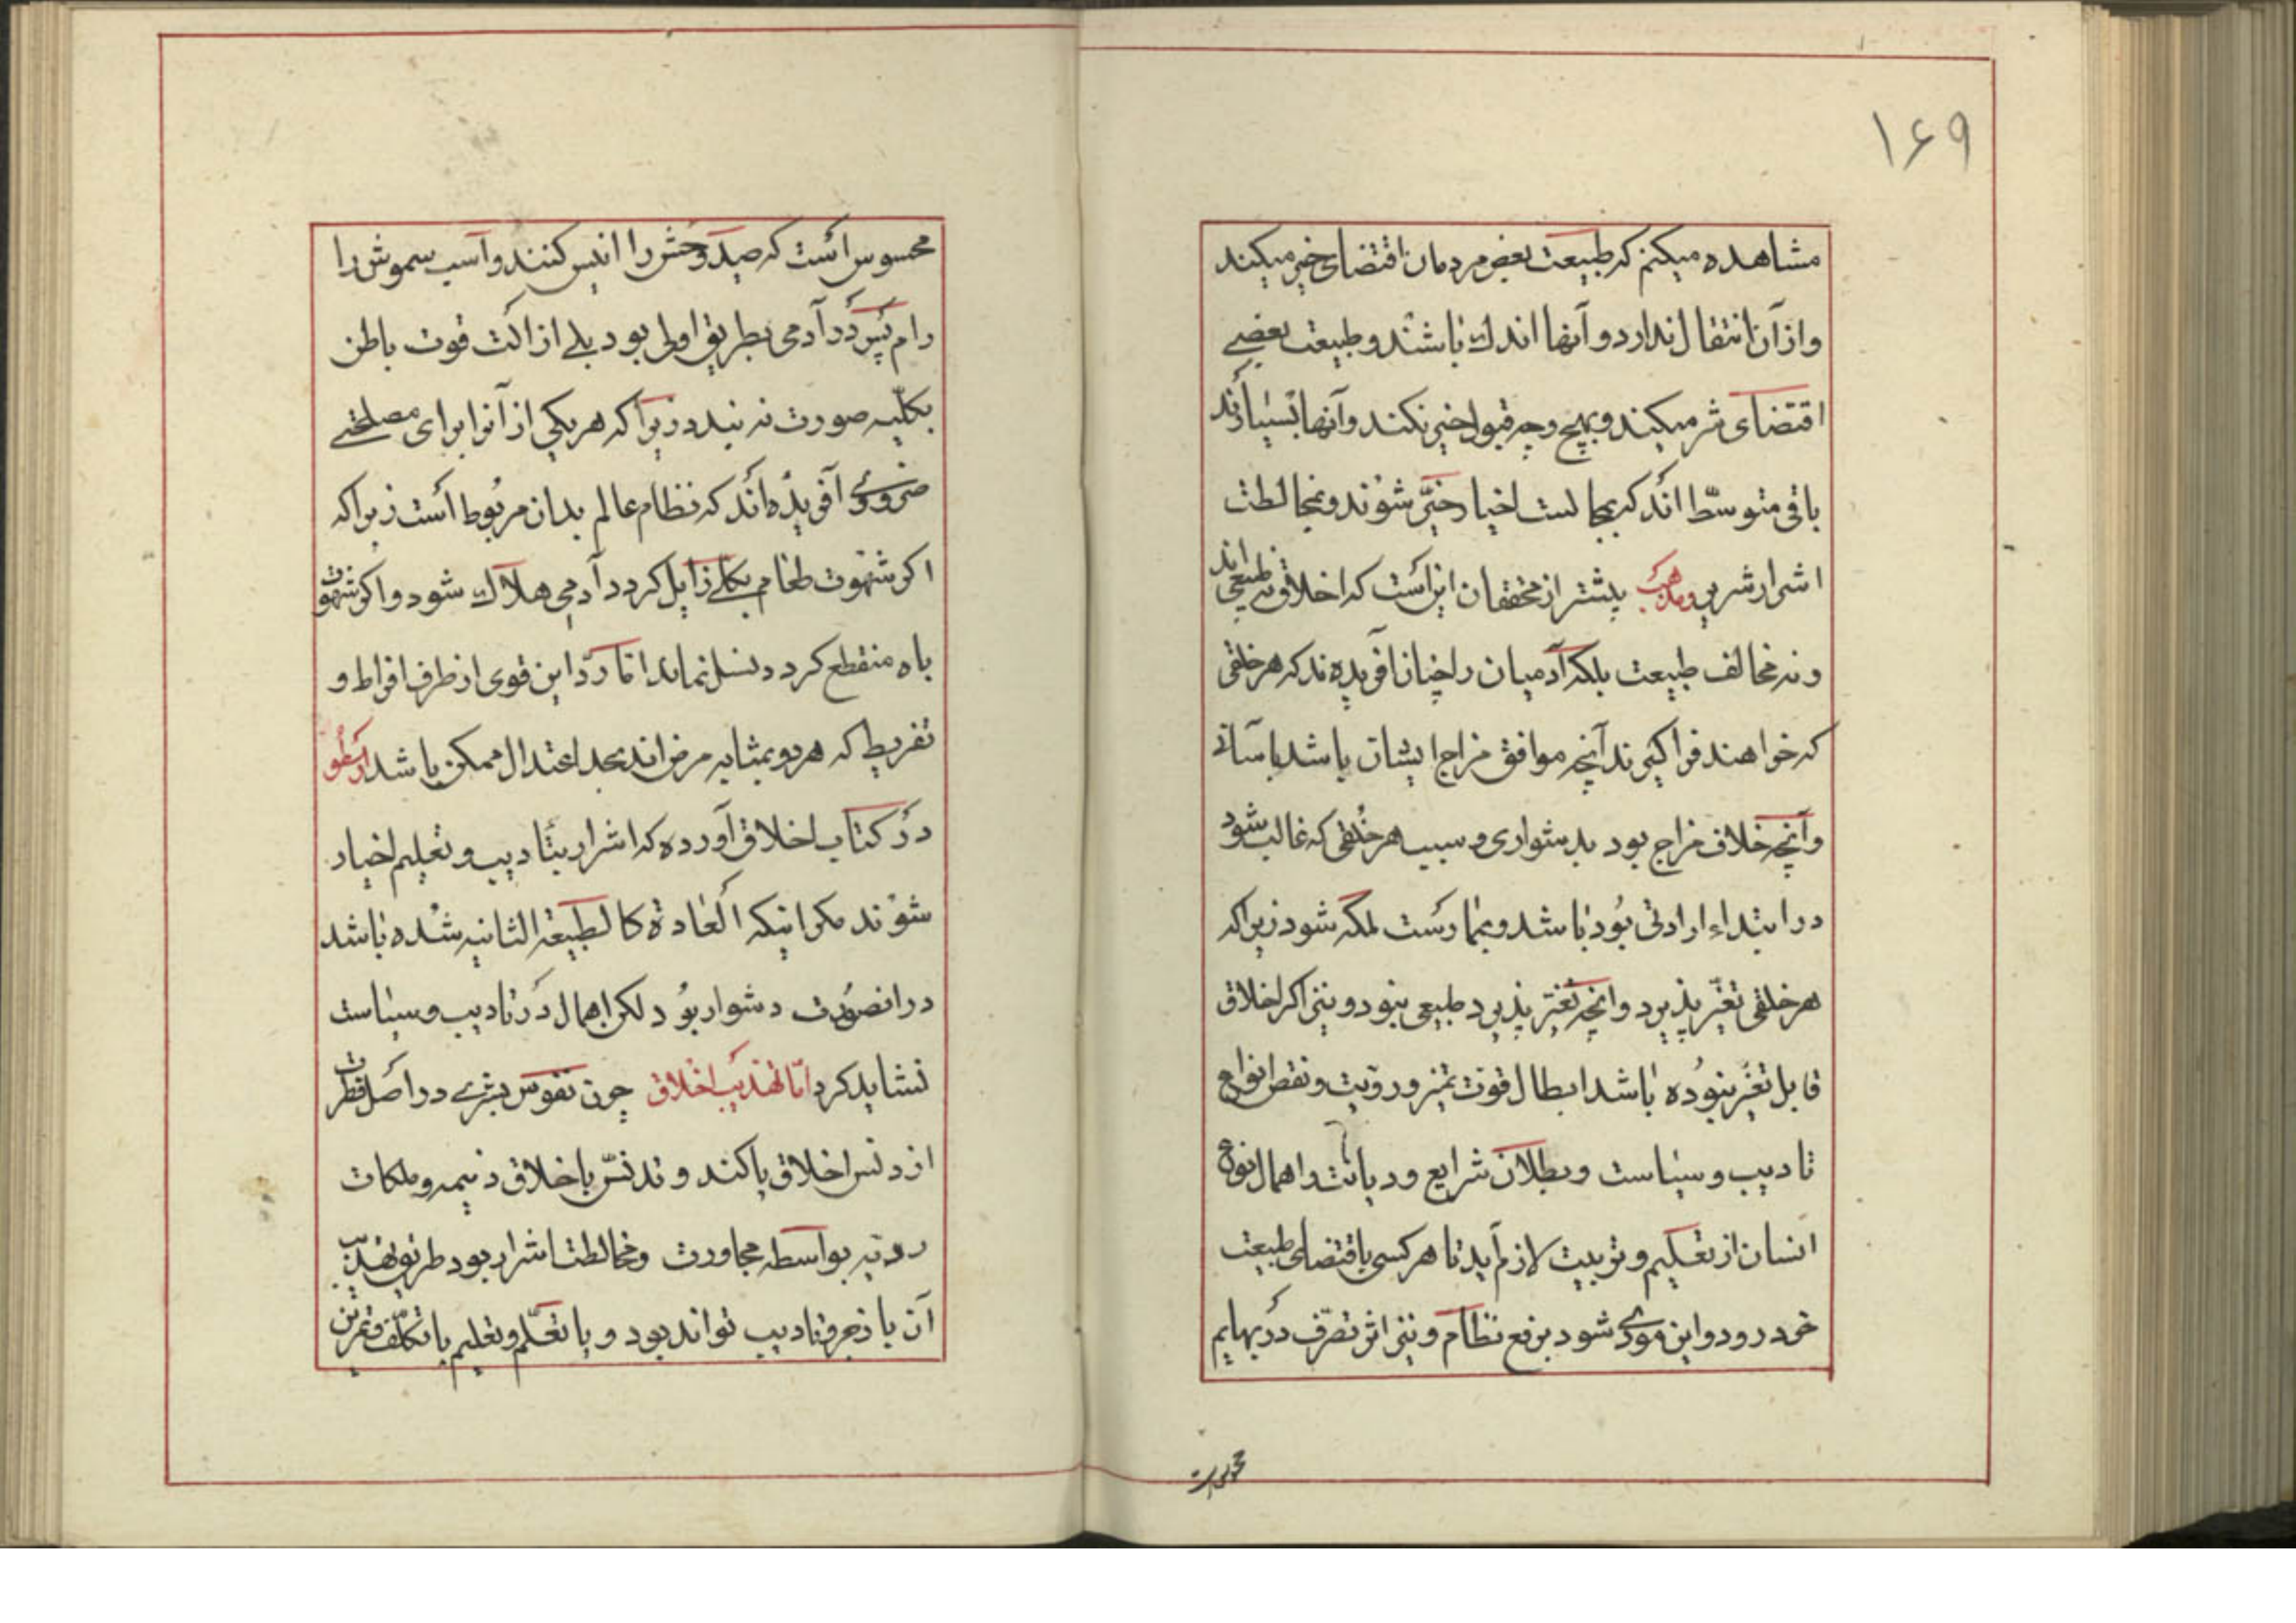 ۱۶۹
مشاهده میکنم که طبیعت بعض مردمان اقتضای خیر میکند
و از آن انتقال ندارد و آنها اندک باشند و طبیعت بعضی
اقتضای شر میکند و بهیچ وجه قبول خیر نکند و آنها بسیارند
باقی متوسّط اند که بمجالست اخیار خیّر شوند و بمخالطت
اشرار شریر و مذهب پیشتر از محققان اینست که اخلاق نه طبیعی اند
و نه مخالف طبیعت بلکه آدمیان را چنان افریده ند که هر خلقی
که خواهند فرا گیرند آنچه موافق مزاج ایشان باشد باسانی
و آنچه خلاف مزاج بود بدشواری و سبب هر خُلقی که غالب شود
در ابتداء ارادتی بود باشد و بممارست ملکه شود زیرا که
هر خلقی تغیّر پذیرد و انچه تغیّر پذیرد طبیعی نبود و نیز اگر اخلاق
قابل تغیّر نبوده باشد ابطال قوت تمیز و رویت و نقص انواع
تادیب و سیاست و بطلان شرایع و دیانت و اهمال نوع
انسان از تعلیم و تربیت لازم آید تا هر کسی باقتضای طبیعت
خود رود و این مودی شود برفع نظام و نیز اثر تصرّف در بهایم
محسوس است
محسوس است که صید وحش را انیس کنند و اسب سموش را
رام پس در آدمی بطریق اولی بود بلی ازالت قوت باطن
بکلّیه صورت نه بندد زیرا که هر یکی از آنرا برای مصلحتی
ضروری آفریده اند که نظام عالم بدان مربوط است زیرا که
اگر شهوت طعام بکلی زایل گردد آدمی هلاک شود و اگر شهوت
باه منقطع گردد نسل نماند اما ردّ این قوی از طرف افراط و
تفریط که هر دو بمثابه مرض اند بحد اعتدال ممکن باشد ارسطو
در کتاب اخلاق آورده که اشرار بتادیب و تعلیم اخیار
شوند مگر اینکه العادة کالطبیعة الثانیه شده باشد
در انصورت دشوار بود لکن اهمال در تادیب و سیاست
نشاید کرد امّا تهذیب اخلاق چون نفوس بشری در اصل فطرت
از دنس اخلاق پاکند و تدنّس باخلاق ذمیمه و ملکات
ردیه بواسطه مجاورت و مخالطت اشرار بود طریق تهذیب
آن یا زجر و تادیب تواند بود و یا تعلّم و تعلیم یا تکلّف و تمرین